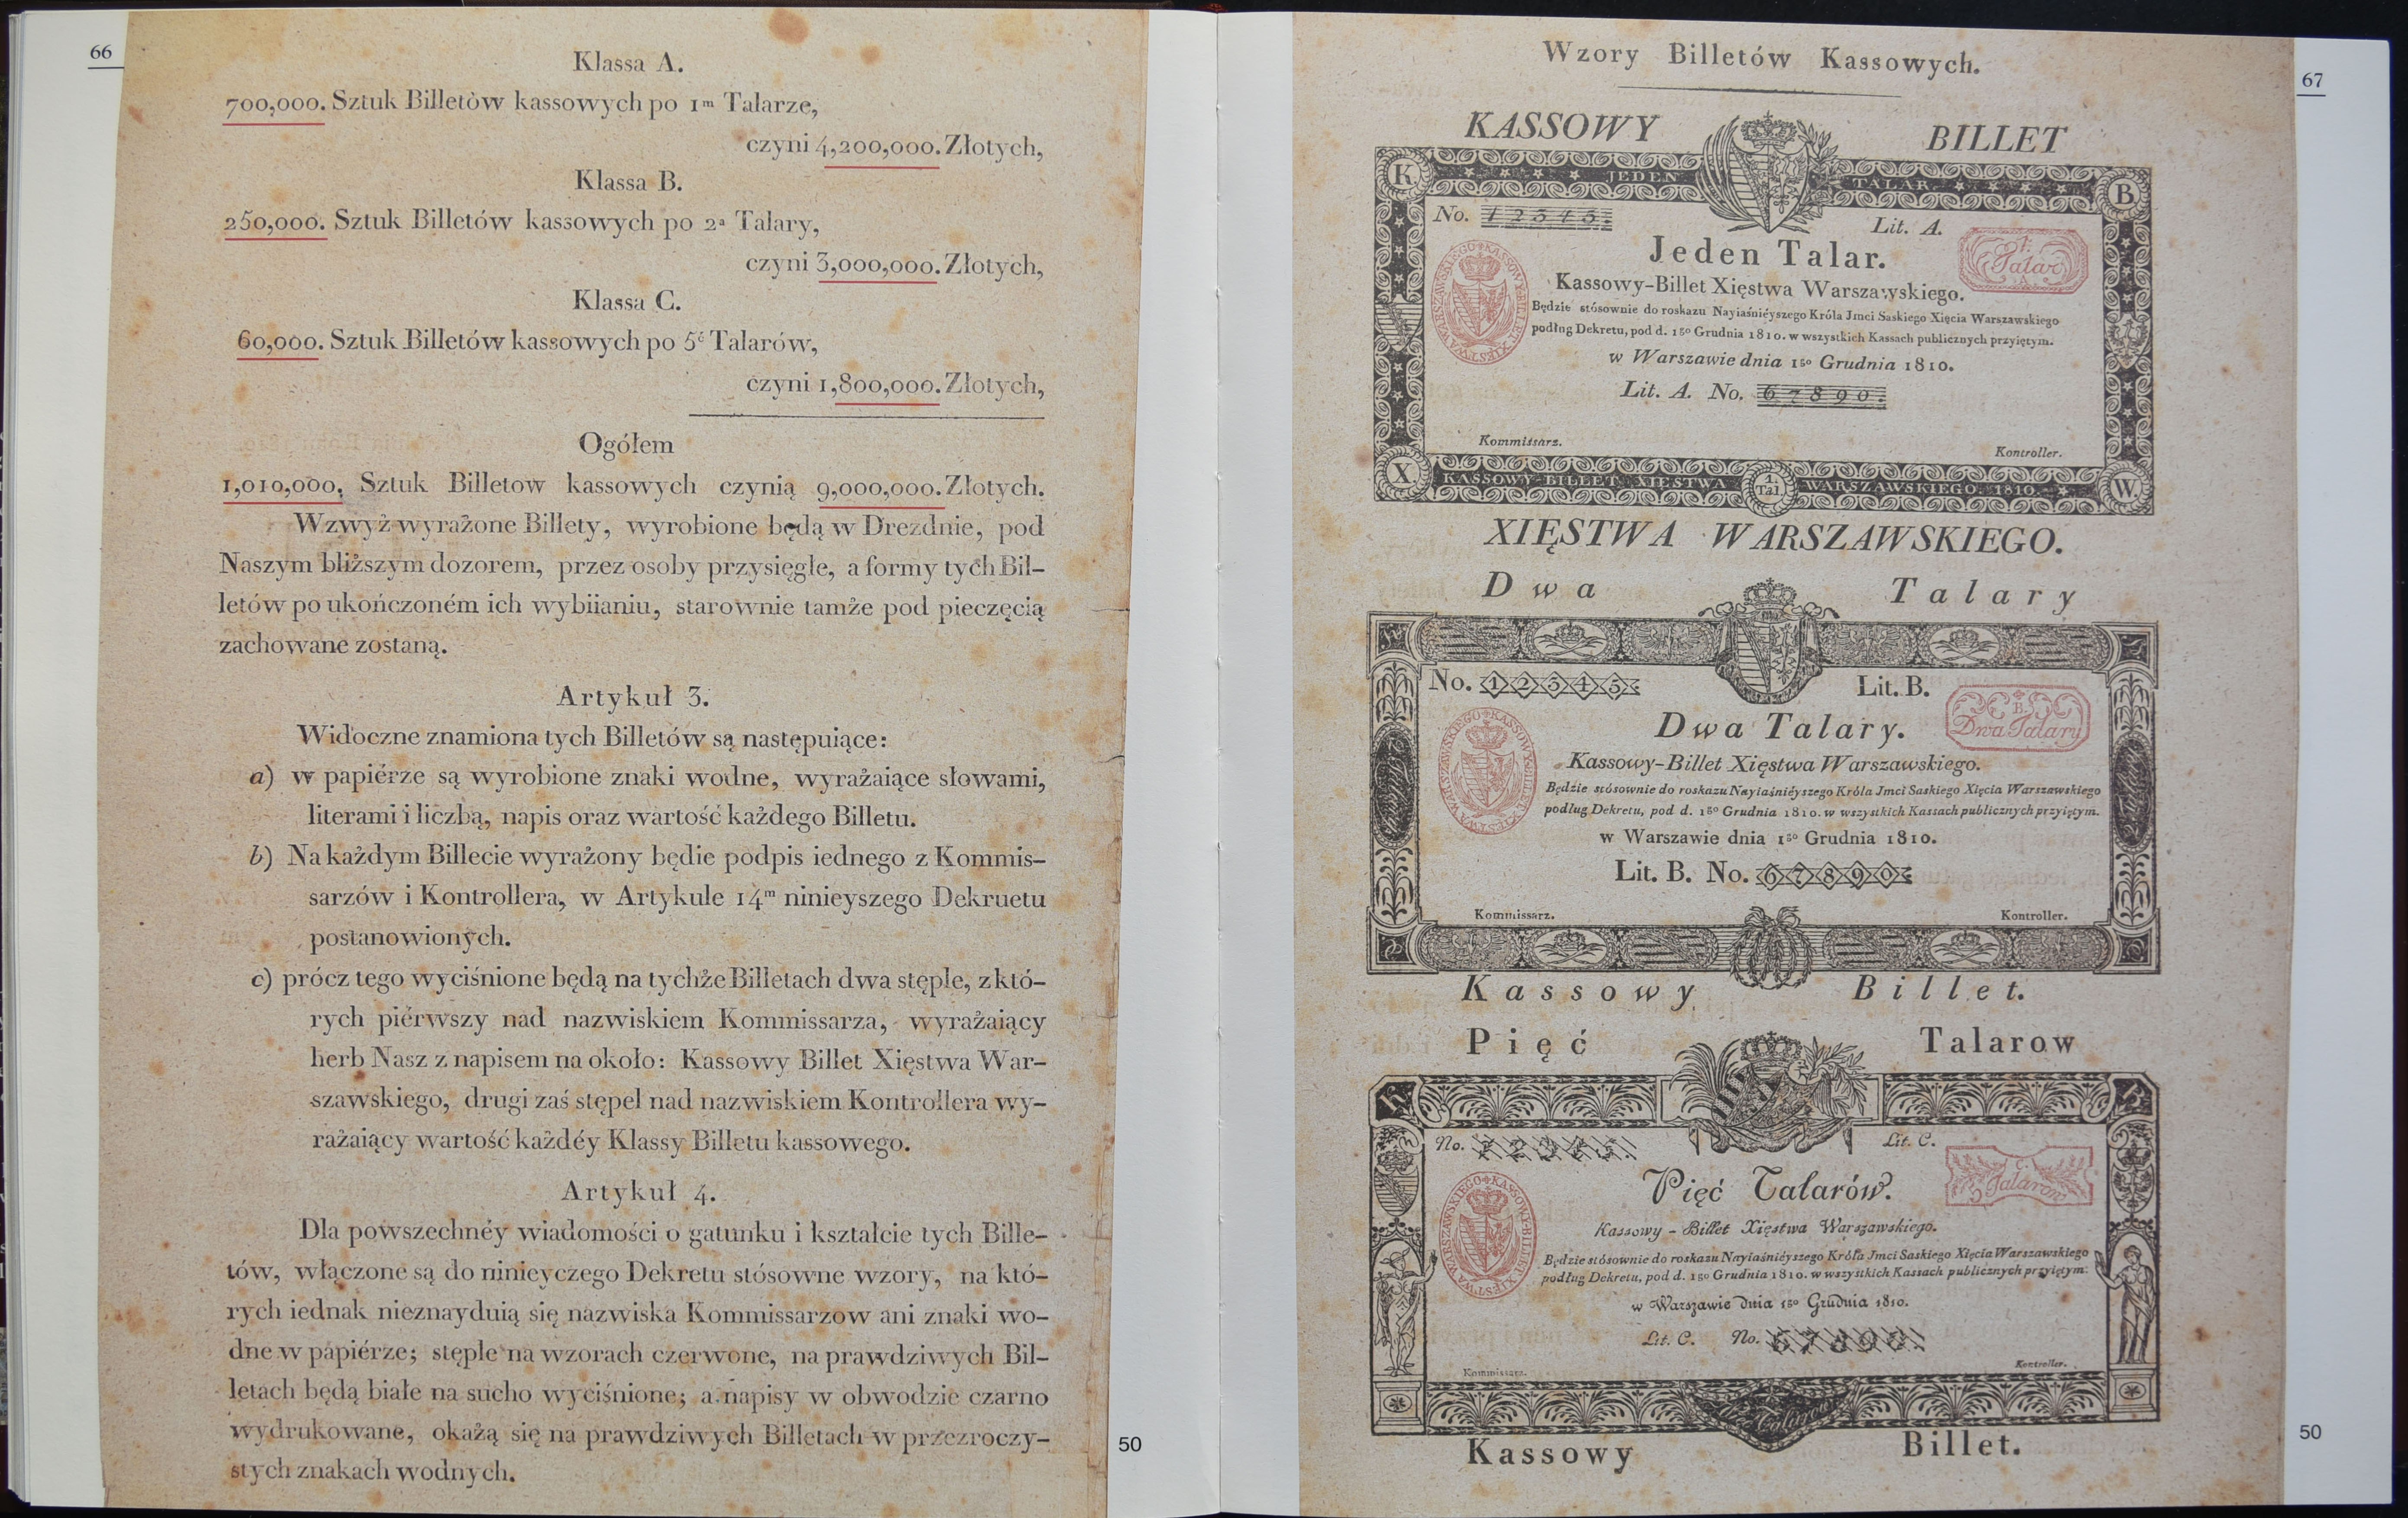 66
Klassa A.
700,000. Sztuk Billetòw kassowych po 1ᵐ Talarze,
czyni 4,200,000. Złotych,
Klassa B.
250,000. Sztuk Billetów kassowych po 2ᵃ Talary,
czyni 3,000,000. Złotych,
Klassa C.
60,000. Sztuk Billetów kassowych po 5ᶜ Talarów,
czyni 1,800,000. Złotych,
Ogółem
1,010,000, Sztuk Billetow kassowych czynią 9,000,000. Złotych.
Wzwyż wyrażone Billety, wyrobione będą w Dreznie, pod
Naszym bliższym dozorem, przez osoby przysięgłe, a formy tych Bil–
letów po ukończoném ich wybiianiu, starownie tamże pod pieczęcią
zachowane zostaną.
Artykuł 3.
Widoczne znamiona tych Billetów są następuiące:
a) w papiérze są wyrobione znaki wodne, wyrażaiące słowami,
literami i liczbą, napis oraz wartość każdego Billetu.
b) Na każdym Billecie wyrażony będie podpis iednego z Kommis–
sarzów i Kontrollera, w Artykule 14ᵐ ninieyszego Dekruetu
postanowionych.
c) prócz tego wyciśnione będą na tychże Billetach dwa stęple, z któ–
rych piérwszy nad nazwiskiem Kommissarza, wyrażaiący
herb Nasz z napisem na około: Kassowy Billet Xięstwa War–
szawskiego, drugi zaś stępel nad nazwiskiem Kontrollera wy–
rażaiący wartość każdéy Klassy Billetu kassowego.
Artykuł 4.
Dla powszechnéy wiadomości o gatunku i kształcie tych Bille–
tów, włączone są do ninieyczego Dekretu stósowne wzory, na któ–
rych iednak nieznayduią się nazwiska Kommissarzow ani znaki wo–
dne w papiérze; stęple na wzorach czerwone, na prawdziwych Bil–
letach będą białe na sucho wyciśnione; a napisy w obwodzie czarno
wydrukowane, okażą się na prawdziwych Billetach w przezroczy–
stych znakach wodnych.
50
67
Wzory Billetów Kassowych.
KASSOWY BILLET
K. JEDEN TALAR B.
No. 12345. Lit. A.
Jeden Talar.
1. Talar A.
KASSOWY-BILLET XIĘSTWA WARSZAWSKIEGO
Kassowy-Billet Xięstwa Warszawskiego.
Będzie stósownie do roskazu Nayiaśniéyszego Króla Jmci Saskiego Xięcia Warszawskiego
podług Dekretu, pod d. 1ᵍᵒ Grudnia 1810. w wszystkich Kassach publicznych przyiętym.
w Warszawie dnia 1ᵍᵒ Grudnia 1810.
Lit. A. No. 67890.
Kommissarz. Kontroller.
X. KASSOWY-BILLET XIĘSTWA 1. Tal. WARSZAWSKIEGO. 1810. W.
XIĘSTWA WARSZAWSKIEGO.
Dwa Talary
No. 12345. Lit. B.
Dwa Talary.
B. Dwa Talary
KASSOWY-BILLET XIĘSTWA WARSZAWSKIEGO
Kassowy-Billet Xięstwa Warszawskiego.
Będzie stósownie do roskazu Nayiaśniéyszego Króla Jmci Saskiego Xięcia Warszawskiego
podług Dekretu, pod d. 1ᵍᵒ Grudnia 1810. w wszystkich Kassach publicznych przyiętym.
w Warszawie dnia 1ᵍᵒ Grudnia 1810.
Lit. B. No. 67890.
Kommissarz. Kontroller.
Kassowy Billet.
Pięć Talarow
No. 12345. Lit. C.
Pięć Talarów.
C. 5 Talarow
KASSOWY-BILLET XIĘSTWA WARSZAWSKIEGO
Kassowy - Billet Xięstwa Warszawskiego.
Będzie stósownie do roskazu Nayiaśniéyszego Króla Jmci Saskiego Xięcia Warszawskiego
podług Dekretu, pod d. 1ᵍᵒ Grudnia 1810. w wszystkich Kassach publicznych przyiętym.
w Warszawie dnia 1ᵍᵒ Grudnia 1810.
Lit. C. No. 67890.
Kommissarz. Kontroller.
Kassowy Billet.
50